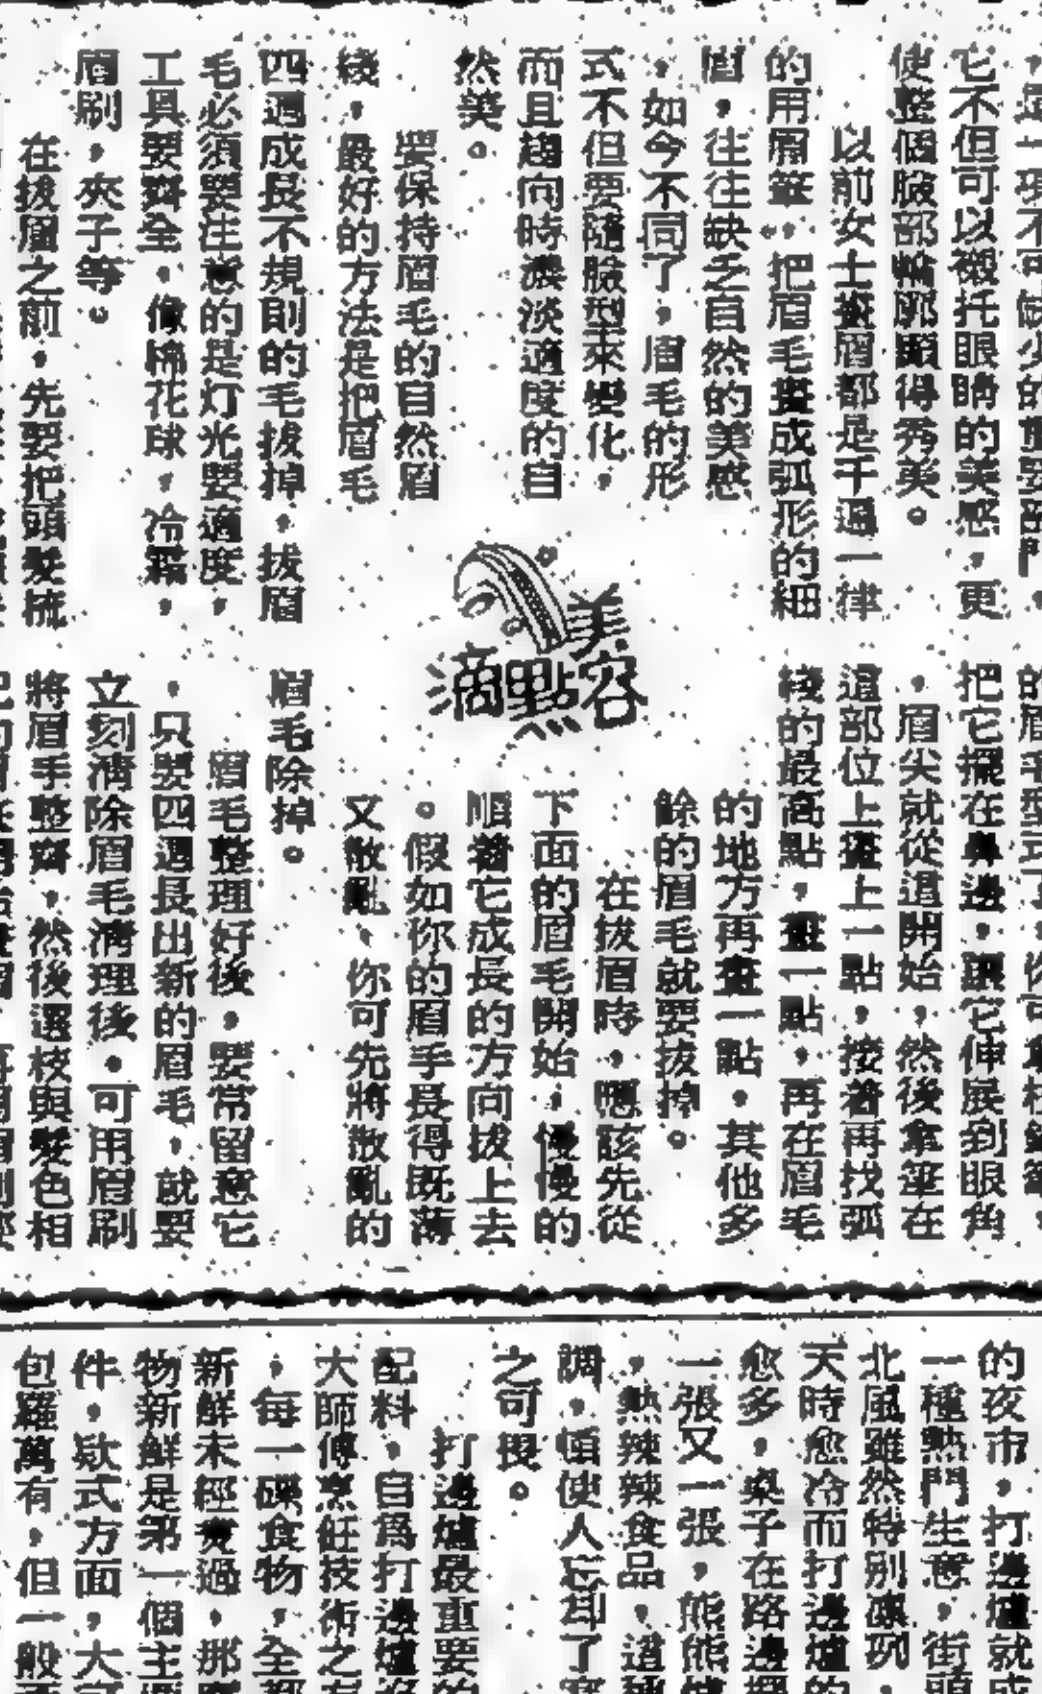 它不但可以襯托眼睛的美感，更
使整個臉部輪廓顯得秀美。
以前女士擬眉都是千遍一律
的用眉筆，把眉毛擬成弧形的細
眉，往往缺乏自然的美感
，如今不同了，眉毛的形
式不但要隨臉型來變化，
而且趨向時濃淡適度的自
然美。
要保持眉毛的自然眉
綫，最好的方法是把眉毛
四週成長不規則的毛拔掉，拔眉
毛必須要注意的是灯光要適度，
工具要齊全，像棉花球，冷霜，
眉刷，夾子等。
在拔眉之前，先要把頭髮梳
美容
點滴
把它擺在鼻邊，讓它伸展到眼角
，眉尖就從這開始，然後拿筆在
這部位上畫上一點，按着再找弧
綫的最高點，畫一點，再在眉毛
的地方再畫一點，其他多
餘的眉毛就要拔掉。
在拔眉時，應該先從
下面的眉毛開始，慢慢的
順着它成長的方向拔上去
。假如你的眉手長得既薄
又散亂，你可先將散亂的
眉毛除掉。
眉毛整理好後，要常留意它
，只要四週長出新的眉毛，就要
立刻清除眉毛清理後，可用眉刷
將眉手整齊，然後選枝與髮色相
的夜市，打邊爐就成
一種熱門生意，街頭
北風雖然特別凜冽，
天時愈冷而打邊爐的
愈多，桌子在路邊擺
一張又一張，熊熊爐
，熱辣辣食品，這種
調，頓使人忘却了寒
之可畏。
打邊爐最重要的
配料，自爲打邊爐
大師傅烹飪技術之
，每一碟食物，全都
新鮮未經煮過，那
物新鮮是第一個主要
件，欵式方面，大可
包羅萬有，但一般